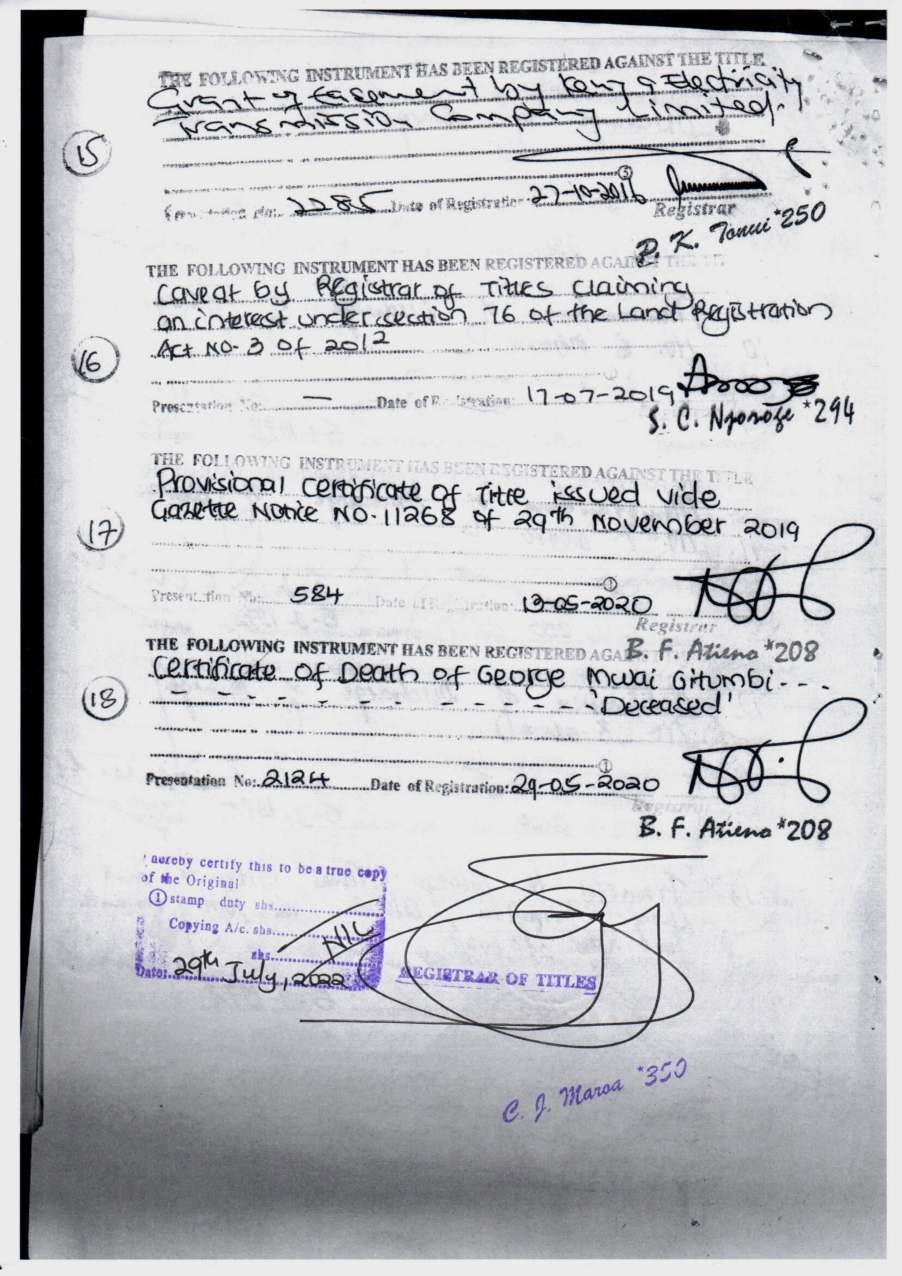 THE FOLLOWING INSTRUMENT HAS BEEN REGISTERED AGAINST THE TITLE
Grant of Easement by Kenya Electricity
Transmission Company Limited.
15
Presentation No: 2285 Date of Registration 27-10-2016
Registrar
P. K. Tonui *250
THE FOLLOWING INSTRUMENT HAS BEEN REGISTERED AGAINST THE TITLE
Caveat by Registrar of Titles claiming
an interest under section 76 of the Land Registration
Act No. 3 of 2012
16
Presentation No: — Date of Registration: 17-07-2019
S. C. Njoroge *294
THE FOLLOWING INSTRUMENT HAS BEEN REGISTERED AGAINST THE TITLE
Provisional Certificate of Title issued vide
Gazette Notice No. 11268 of 29th November 2019
17
Presentation No: 584 Date of Registration: 13-05-2020
Registrar
B. F. Atieno *208
THE FOLLOWING INSTRUMENT HAS BEEN REGISTERED AGA
Certificate of Death of George Mwai Gitumbi - - -
- - - - - - - - - 'Deceased'
18
Presentation No: 2124 Date of Registration: 29-05-2020
Registrar
B. F. Atieno *208
hereby certify this to be a true copy
of the Original
1 stamp duty shs
Copying A/c. shs
NIL
shs
Date: 29th July, 2022
REGISTRAR OF TITLES
C. J. Maroa *350